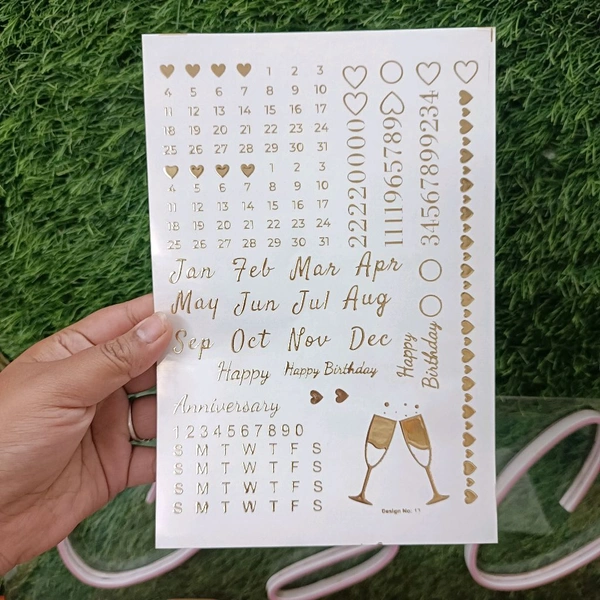 1 2 3
4 5 6 7 8 9 10
11 12 13 14 15 16 17
18 19 20 21 22 23 24
25 26 27 28 29 30 31
1 2 3
4 5 6 7 8 9 10
11 12 13 14 15 16 17
18 19 20 21 22 23 24
25 26 27 28 29 30 31
2222000000
1111965789
34567899234
Jan Feb Mar Apr
May Jun Jul Aug
Sep Oct Nov Dec
Happy Happy Birthday
Happy
Birthday
Anniversary
1 2 3 4 5 6 7 8 9 0
S M T W T F S
S M T W T F S
S M T W T F S
S M T W T F S
Design No: 11